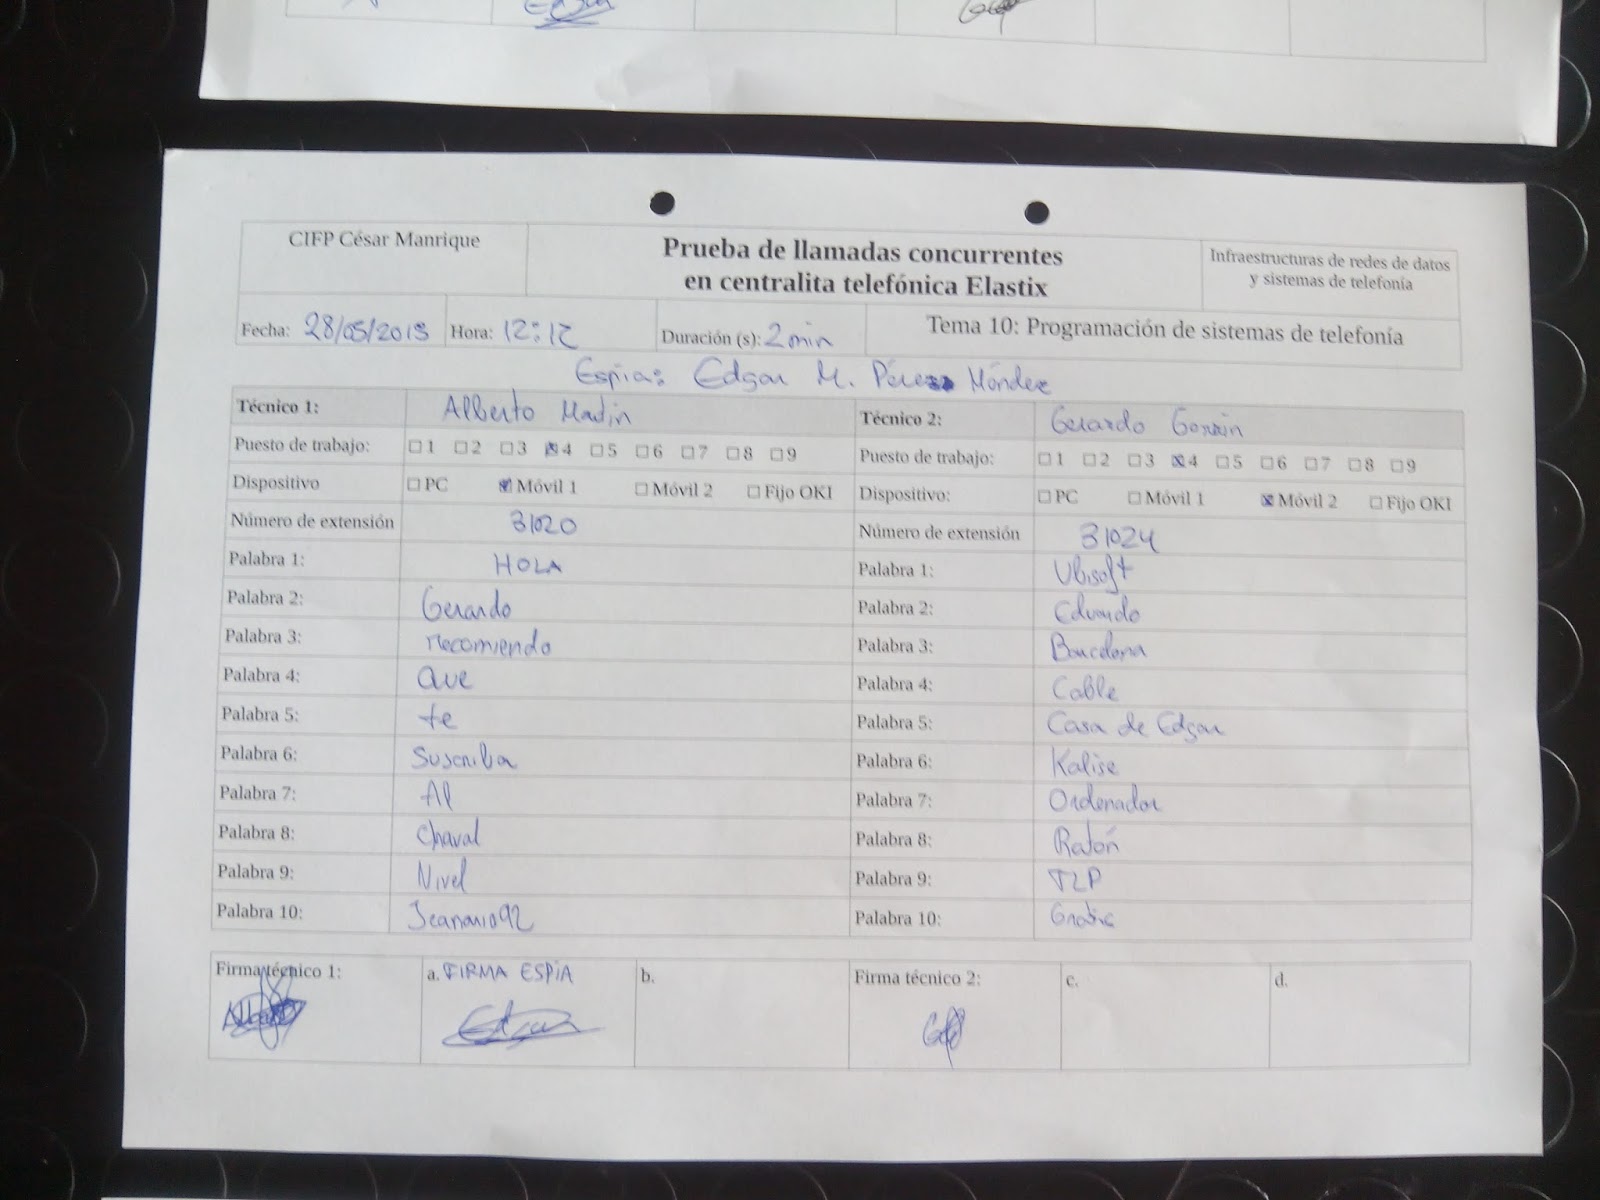 CIFP César Manrique
Prueba de llamadas concurrentes
en centralita telefónica Elastix
Infraestructuras de redes de datos
y sistemas de telefonía
Fecha: 28/05/2013 Hora: 12:12 Duración (s): 2 min Tema 10: Programación de sistemas de telefonía
Espía: Edgar M. Pérez Méndez
Técnico 1: Alberto Martín Técnico 2: Gerardo
Puesto de trabajo: 1 2 3 4 5 6 7 8 9 Puesto de trabajo: 1 2 3 4 5 6 7 8 9
Dispositivo PC Móvil 1 Móvil 2 Fijo OKI Dispositivo: PC Móvil 1 Móvil 2 Fijo OKI
Número de extensión 31020 Número de extensión 31024
Palabra 1: HOLA Palabra 1: Ubisoft
Palabra 2: Gerardo Palabra 2: Eduardo
Palabra 3: recomiendo Palabra 3: Barcelona
Palabra 4: Que Palabra 4: Cable
Palabra 5: te Palabra 5: Casa de Edgar
Palabra 6: Suscriba Palabra 6: Kalise
Palabra 7: Al Palabra 7: Ordenador
Palabra 8: Chaval Palabra 8: Ratón
Palabra 9: Nivel Palabra 9: TLP
Palabra 10: Jcanario92 Palabra 10:
Firma técnico 1: a. FIRMA ESPIA b. Firma técnico 2: c. d.
Edgar